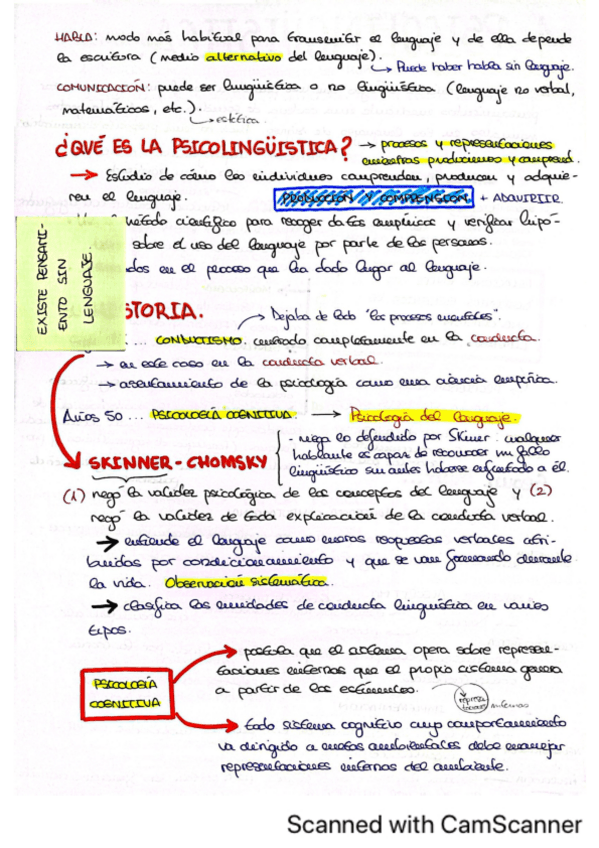 HABLA: modo más habitual para transmitir el lenguaje y de ella depende
la escritura (medio alternativo del lenguaje).
↳ Puede haber habla sin lenguaje.
COMUNICACIÓN: puede ser lingüística o no lingüística (lenguaje no verbal,
matemáticas, etc.).
↳ estética
¿QUÉ ES LA PSICOLINGÜISTICA? → procesos y representaciones
mientras producimos y comprend.
→ Estudio de cómo los individuos comprenden, producen y adquie-
ren el lenguaje.
PRODUCCIÓN Y COMPRENSIÓN + ADQUIRIR.
método científico para recoger datos empíricos y verificar hipó-
sobre el uso del lenguaje por parte de las personas.
dos en el proceso que ha dado lugar al lenguaje.
EXISTE PENSAMI-
ENTO SIN
LENGUAJE.
STORIA.
→ Dejaba de lado "los procesos mentales".
... CONDUCTISMO. centrado completamente en la conducta.
→ en este caso en la conducta verbal.
→ asentamiento de la psicología como una ciencia empírica.
Años 50 ... PSICOLOGÍA COGNITIVA. → Psicología del lenguaje.
SKINNER - CHOMSKY
- niega lo defendido por Skiner. cualquier
hablante es capaz de reconocer un fallo
lingüístico sin antes haberse enfrentado a él.
(1) negó la validez psicológica de los conceptos del lenguaje y (2)
negó la validez de toda explicación de la conducta verbal.
→ entiende el lenguaje como meras respuestas verbales atri-
buidas por condicionamiento y que se van formando durante
la vida. Observación sistemática.
→ clasifica las unidades de conducta lingüística en varios
tipos.
PSICOLOGÍA
COGNITIVA
→ postula que el sistema opera sobre represen-
taciones internas que el propio sistema genera
a partir de los estímulos.
internas
→ todo sistema cognitivo cuyo comportamiento
va dirigido a metas ambientales debe manejar
representaciones internas del ambiente.
Scanned with CamScanner